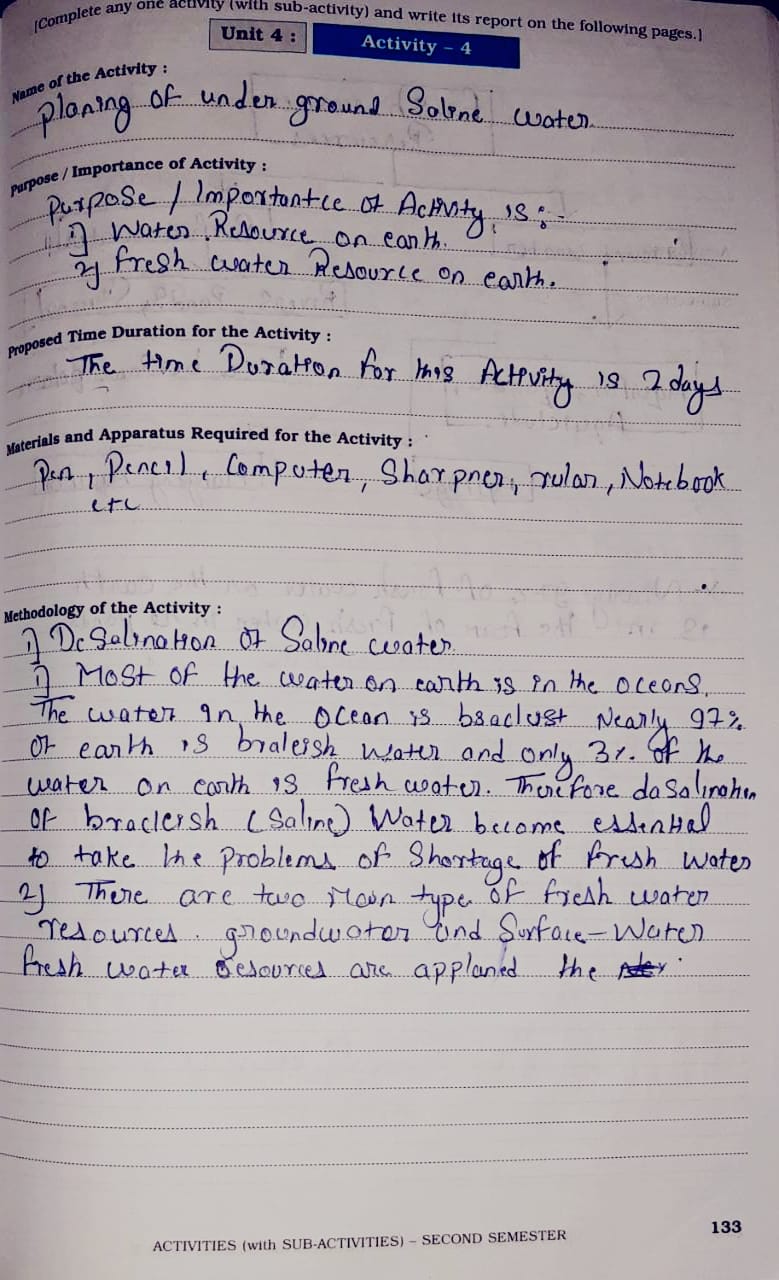 [Complete any one activity (with sub-activity) and write its report on the following pages.]
Unit 4 :
Activity – 4
Name of the Activity :
planing of under ground Saline water
Purpose / Importance of Activity :
Purpose / Importantce of Activity is :-
1) Water Resource on earth.
2) fresh water Resource on earth.
Proposed Time Duration for the Activity :
The time Duration for this Activity is 2 days
Materials and Apparatus Required for the Activity :
Pen, Pencil, Computer, Sharpner, rular, Notebook
etc
Methodology of the Activity :
1) DeSalination of Saline water
1) Most of the water on earth is in the oceans.
The water in the Ocean is Nearly 97%
of earth is water and only 3%. of the
water on earth is fresh water. Therefore daSalination
of brackish (Saline) Water become essential
to take the problems of Shortage of fresh water
2) There are two main type of fresh water
resources. groundwater and Surface-Water
fresh water resources are applaned the
133
ACTIVITIES (with SUB-ACTIVITIES) – SECOND SEMESTER